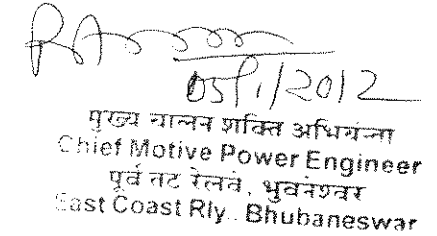 05/1/2012
मुख्य चालन शक्ति अभियन्ता
Chief Motive Power Engineer
पूर्व तट रेलवे, भुवनेश्वर
East Coast Rly., Bhubaneswar